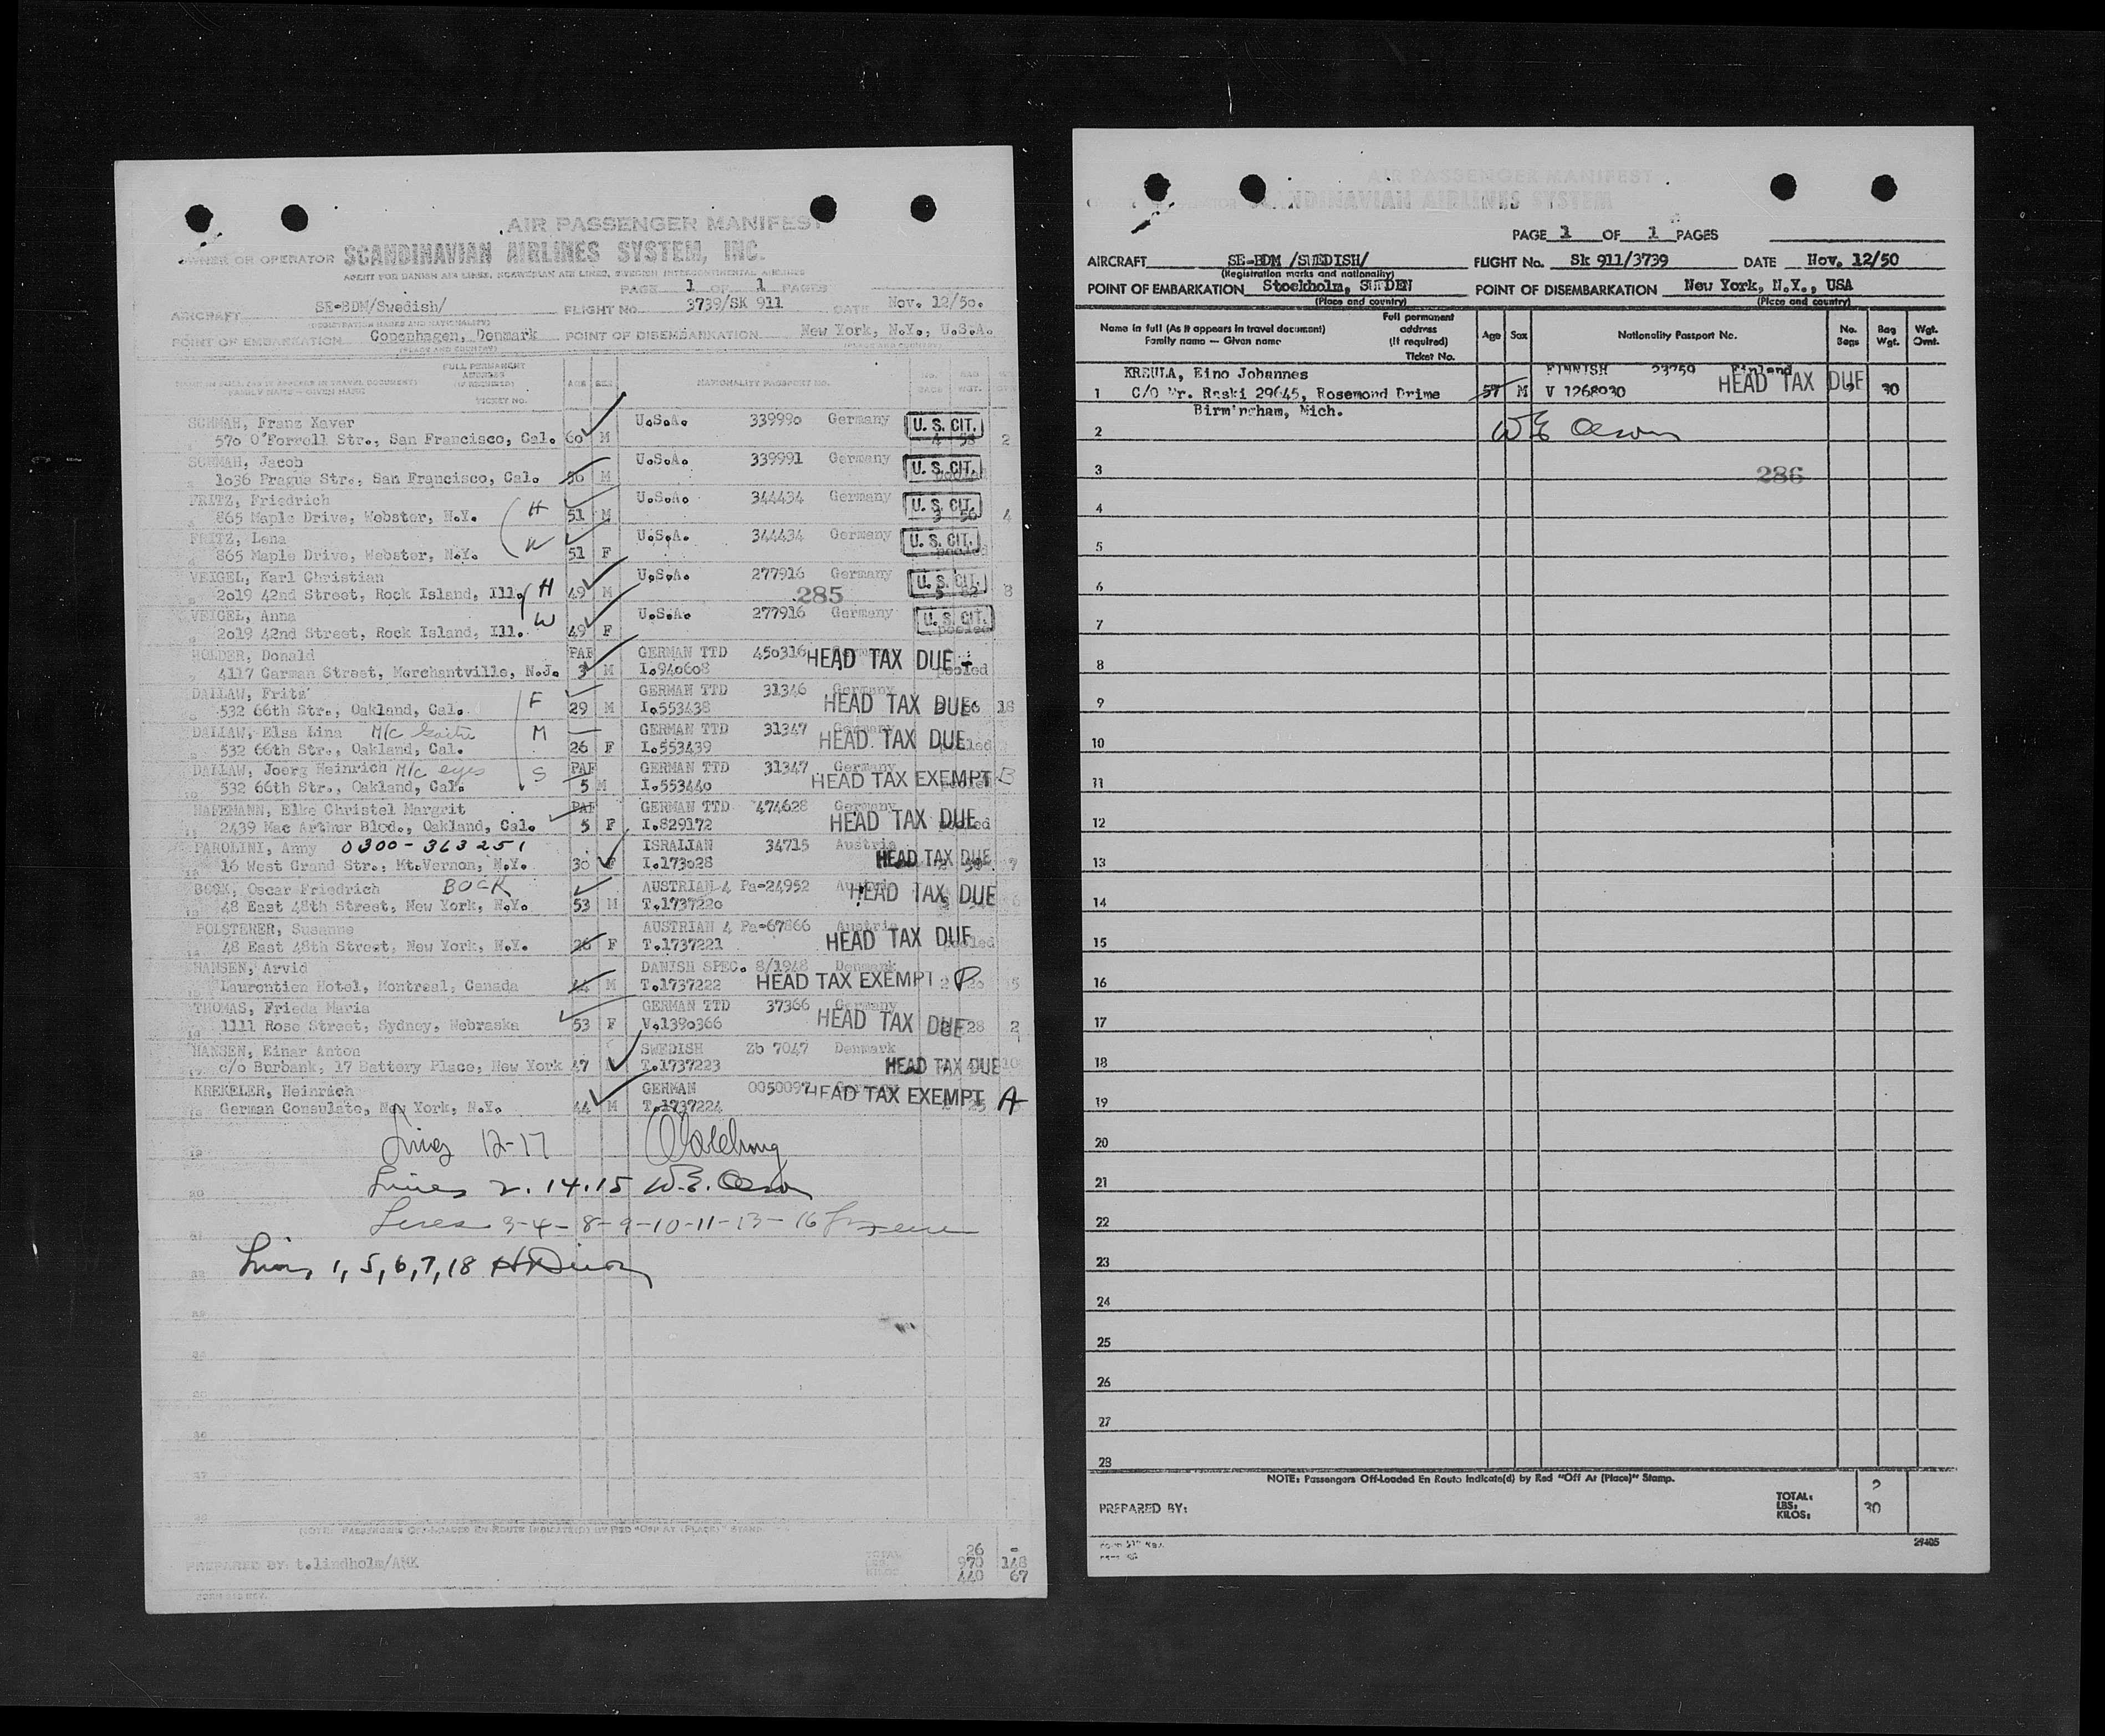 AIR PASSENGER MANIFEST
OWNER OR OPERATOR SCANDINAVIAN AIRLINES SYSTEM, INC.
AGENT FOR DANISH AIR LINES, NORWEGIAN AIR LINES, SWEDISH INTERCONTINENTAL AIRLINES
PAGE 1 OF 1 PAGES
AIRCRAFT SE-BDM/Swedish/ FLIGHT No. 3739/SK 911 DATE Nov. 12/50.
(REGISTRATION MARKS AND NATIONALITY)
POINT OF EMBARKATION Copenhagen, Denmark POINT OF DISEMBARKATION New York, N.Y., U.S.A.
(PLACE AND COUNTRY) (PLACE AND COUNTRY)
FULL PERMANENT
NAME IN FULL (AS IT APPEARS IN TRAVEL DOCUMENT) ADDRESS (IF REQUIRED) AGE SEX NATIONALITY PASSPORT NO. NO. BAGS BAG WGT.
FAMILY NAME - GIVEN NAME TICKET NO.
SCHMAH, Franz Xaver U.S.A. 339990 Germany U. S. CIT.
570 O'Forrell Str., San Francisco, Cal. 60 M 4 58 2
SCHMAH, Jacob U.S.A. 339991 Germany U. S. CIT.
1036 Prague Str., San Francisco, Cal. 56 M pooled
FRITZ, Friedrich H U.S.A. 344434 Germany U. S. CIT.
865 Maple Drive, Webster, N.Y. 51 M 3 56 4
FRITZ, Lena W U.S.A. 344434 Germany U. S. CIT.
865 Maple Drive, Webster, N.Y. 51 F pooled
VEIGEL, Karl Christian U.S.A. 277916 Germany U. S. CIT.
2019 42nd Street, Rock Island, Ill. H 49 M 285 8
VEIGEL, Anna W U.S.A. 277916 Germany U. S. CIT.
2019 42nd Street, Rock Island, Ill. 49 F pooled
HOLDER, Donald PAF GERMAN TTD 450316 HEAD TAX DUE
4117 Garman Street, Merchantville, N.J. 3 M I.940608 pooled
DALLAW, Fritz F GERMAN TTD 31346 Germany
532 66th Str., Oakland, Cal. 29 M I.553438 HEAD TAX DUE 66 18
DALLAW, Elsa Lina M/C M GERMAN TTD 31347 Germany
532 66th Str., Oakland, Cal. 26 F I.553439 HEAD TAX DUE pooled
DALLAW, Joerg Heinrich M/C eyes S PAF GERMAN TTD 31347 Germany
532 66th Str., Oakland, Cal. 5 M I.553440 HEAD TAX EXEMPT B
HAFEMANN, Elke Christel Margrit PAF GERMAN TTD 474628 Germany
2439 Mac Arthur Blcd., Oakland, Cal. 5 F I.829172 HEAD TAX DUE pooled
PAROLINI, Anny 0300-363251 ISRALIAN 34715 Austria
16 West Grand Str., Mt.Vernon, N.Y. 30 F I.173028 HEAD TAX DUE 7
BOOK, Oscar Friedrich BOCK AUSTRIAN 4 Pa-24952 Austria
48 East 48th Street, New York, N.Y. 53 M T.1737220 HEAD TAX DUE
POLSTERER, Susanne AUSTRIAN 4 Pa-67866 Austria
48 East 48th Street, New York, N.Y. 26 F T.1737221 HEAD TAX DUE pooled
HANSEN, Arvid DANISH SPEC. 8/1948 Denmark
Laurontien Hotel, Montreal, Canada 44 M T.1737222 HEAD TAX EXEMPT 2 P 20 5
THOMAS, Frieda Maria GERMAN TTD 37366 Germany
1111 Rose Street, Sydney, Nebraska 53 F V.1390366 HEAD TAX DUE 28 2
HANSEN, Einar Anton SWEDISH Zb 7047 Denmark
c/o Burbank, 17 Battery Place, New York 47 M T.1737223 HEAD TAX DUE 10
KREKELER, Heinrich GERMAN 0050097 HEAD TAX EXEMPT A
German Consulate, New York, N.Y. 44 M T.1737224 25
Lines 12-17
Lines 2.14.15 W.E. Olson
Lines 3-4-8-9-10-11-13-16
Lines 1,5,6,7,18
(NOTE: PASSENGERS OFF-LOADED EN ROUTE INDICATE(D) BY RED "OFF AT (PLACE)" STAMP.
PREPARED BY t.lindholm/AMK TOTAL 26 -
LBS. 970 148
KILOS 440 67
AIR PASSENGER MANIFEST
SCANDINAVIAN AIRLINES SYSTEM
PAGE 1 OF 1 PAGES
AIRCRAFT SE-BDM /SWEDISH/ FLIGHT No. Sk 911/3739 DATE Nov. 12/50
(Registration marks and nationality)
POINT OF EMBARKATION Stockholm, SWEDEN POINT OF DISEMBARKATION New York, N.Y., USA
(Place and country) (Place and country)
Name in full (As it appears in travel document) Full permanent address (If required) Age Sex Nationality Passport No. No. Bags Bag Wgt. Wgt. Ovrnt.
Family name — Given name Ticket No.
KREULA, Eino Johannes FINNISH 23759 Finland
1 C/O Mr. Raski 29645, Rosemond Drime 57 M V 1268930 HEAD TAX DUE 2 30
Birmingham, Mich.
2 W E Olson
3 286
4
5
6
7
8
9
10
11
12
13
14
15
16
17
18
19
20
21
22
23
24
25
26
27
28
NOTE: Passengers Off-Loaded En Route Indicate(d) by Red "Off At (Place)" Stamp.
PREPARED BY: TOTAL: 2
LBS:
KILOS: 30
29405